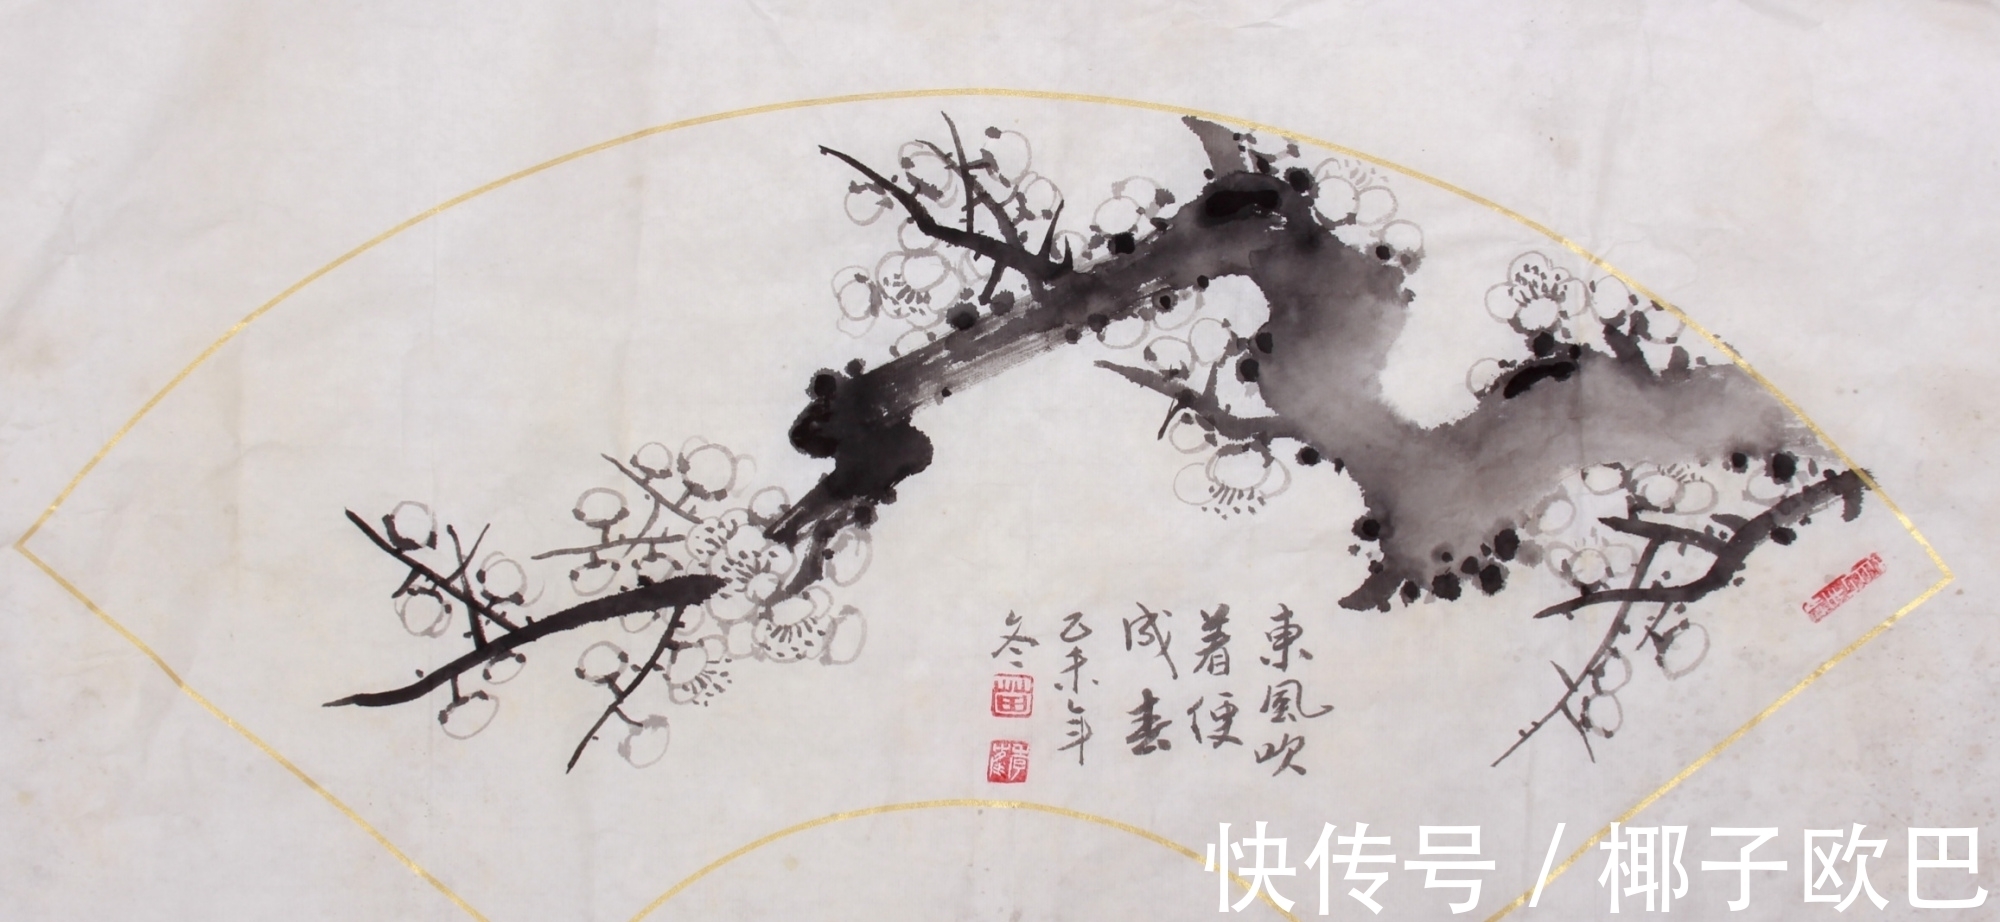 東風吹
着便
成春
乙未年
冬
快传号 / 椰子欧巴